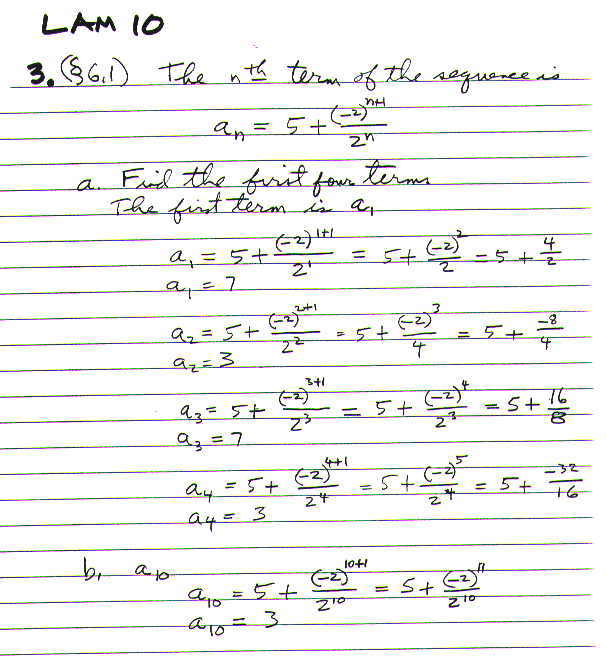 LAM 10
3. (§6.1) The nth term of the sequence is
aₙ = 5 + (-2)ⁿ⁺¹/2ⁿ
a. Find the first four terms
The first term is a₁
a₁ = 5 + (-2)¹⁺¹/2¹ = 5 + (-2)²/2 = 5 + 4/2
a₁ = 7
a₂ = 5 + (-2)²⁺¹/2² = 5 + (-2)³/4 = 5 + -8/4
a₂ = 3
a₃ = 5 + (-2)³⁺¹/2³ = 5 + (-2)⁴/2³ = 5 + 16/8
a₃ = 7
a₄ = 5 + (-2)⁴⁺¹/2⁴ = 5 + (-2)⁵/2⁴ = 5 + -32/16
a₄ = 3
b. a₁₀
a₁₀ = 5 + (-2)¹⁰⁺¹/2¹⁰ = 5 + (-2)¹¹/2¹⁰
a₁₀ = 3